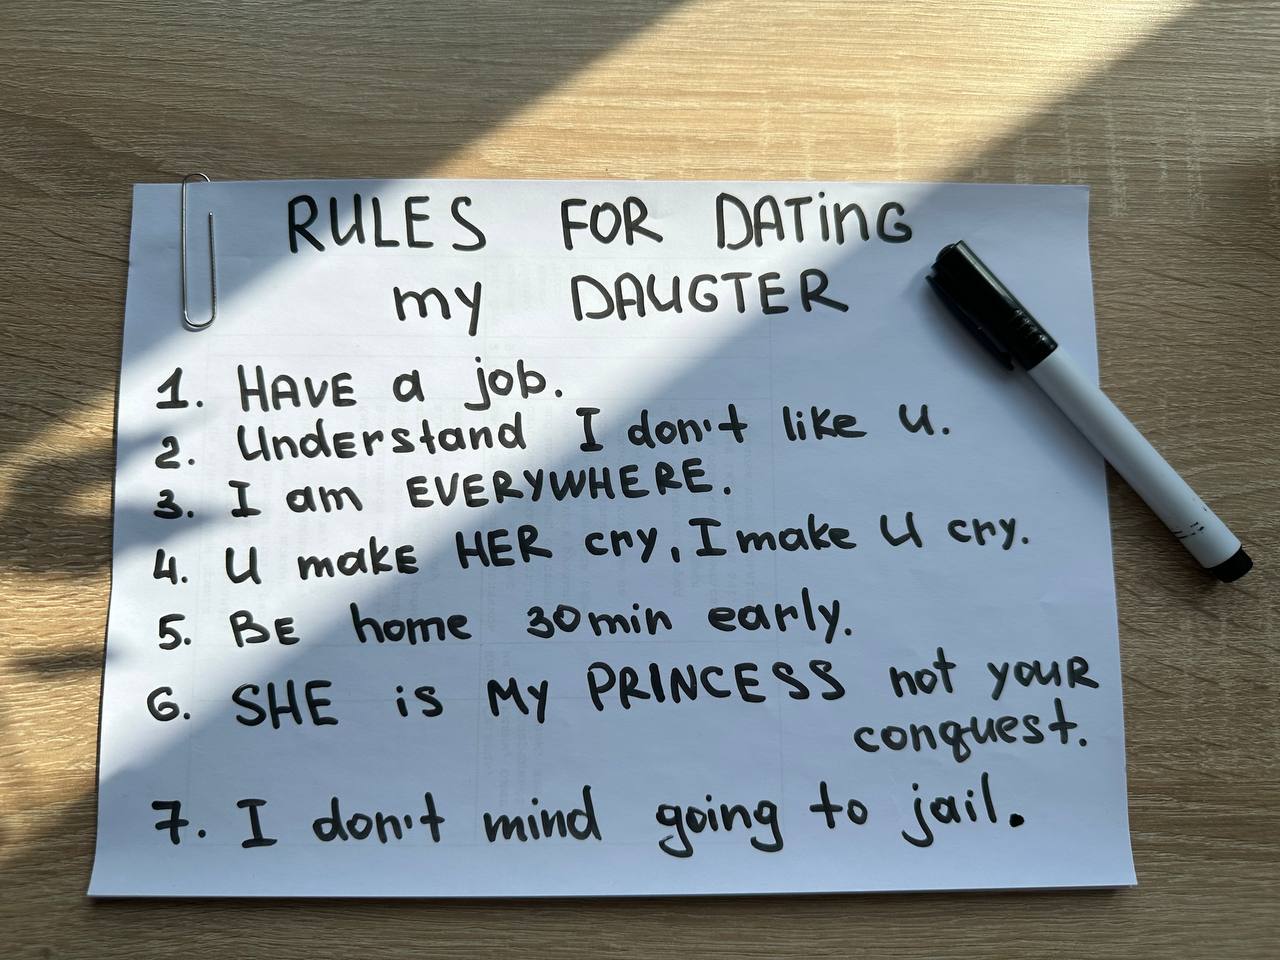 RULES FOR DATiNG
my DAUGTER
1. HAVE a job.
2. UndErstand I don't likE U.
3. I am EVERYWHERE.
4. U makE HER cry, I make U cry.
5. BE home 30min early.
6. SHE is My PRINCESS not youR
conquest.
7. I don't mind going to jail.